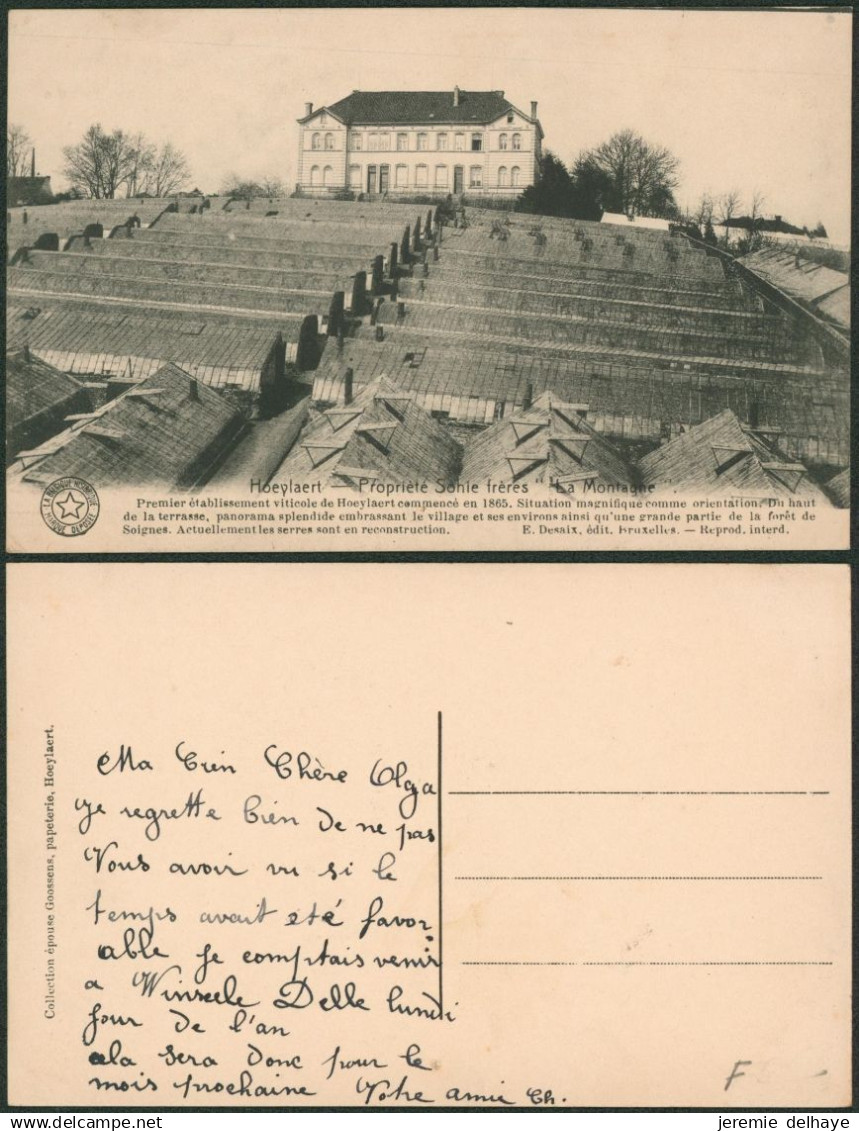 Hoeylaert — Propriété Sohie frères "La Montagne".
LA BELGIQUE HISTORIQUE
MARQUE DÉPOSÉE
Premier établissement viticole de Hoeylaert commencé en 1865. Situation magnifique comme orientation. Du haut
de la terrasse, panorama splendide embrassant le village et ses environs ainsi qu'une grande partie de la forêt de
Soignes. Actuellement les serres sont en reconstruction. E. Desaix, édit. Bruxelles. — Reprod. interd.
Collection épouse Goossens, papeterie, Hoeylaert.
Ma bien Chère Olga
Je regrette bien de ne pas
Vous avoir vu si le
temps avait été favor
able je comptais venir
a Winxele Delle lundi
jour de l'an
Ala sera donc pour le
mois prochaine Votre amie Ch.
F
jeremie delhaye